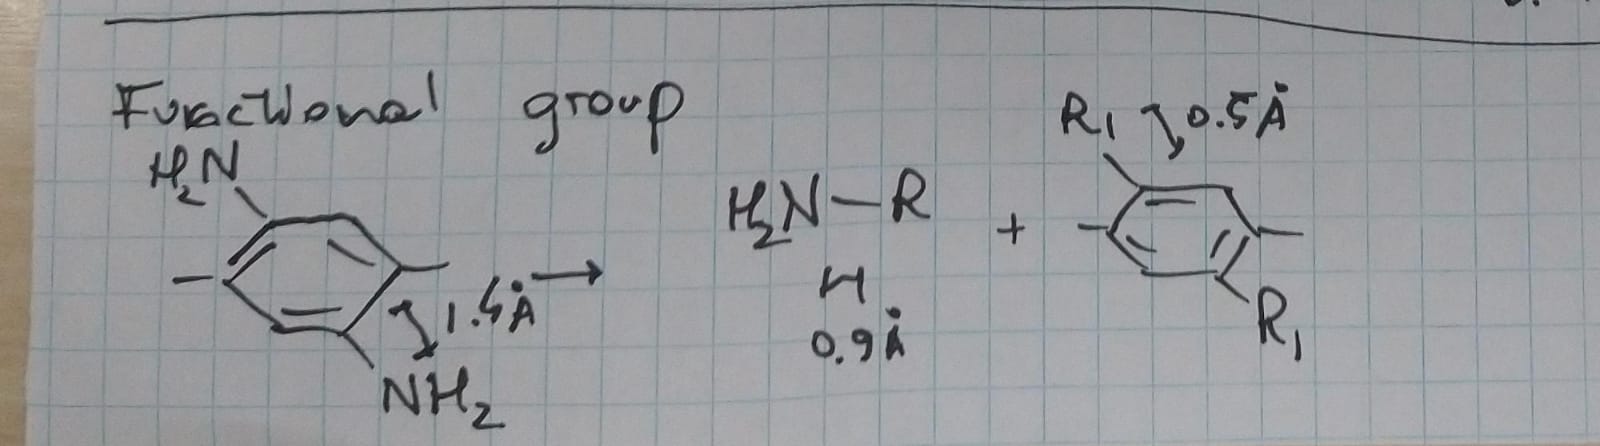 Functional group
H₂N
NH₂
1.5Å
→
H₂N–R
H
0.9Å
+
R₁
0.5Å
R₁